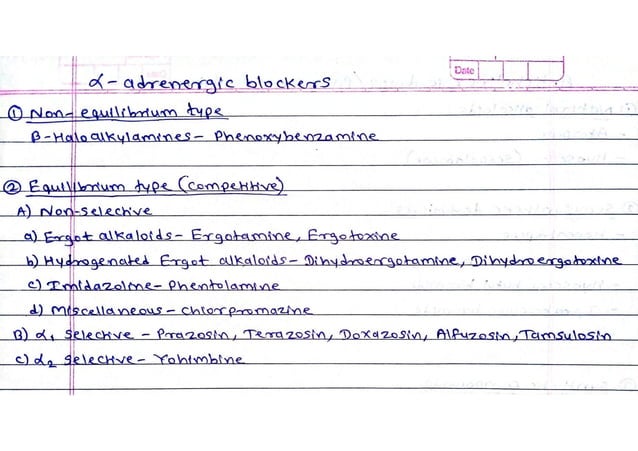 Date
α-adrenergic blockers
① Non-equilibrium type
β-Haloalkylamines- Phenoxybenzamine
② Equilibrium type (competitive)
A) Non-selective
a) Ergot alkaloids- Ergotamine, Ergotoxine
b) Hydrogenated Ergot alkaloids- Dihydroergotamine, Dihydroergotoxine
c) Imidazoline- Phentolamine
d) Miscellaneous- chlorpromazine
B) α₁ selective - Prazosin, Terazosin, Doxazosin, Alfuzosin, Tamsulosin
c) α₂ selective- Yohimbine